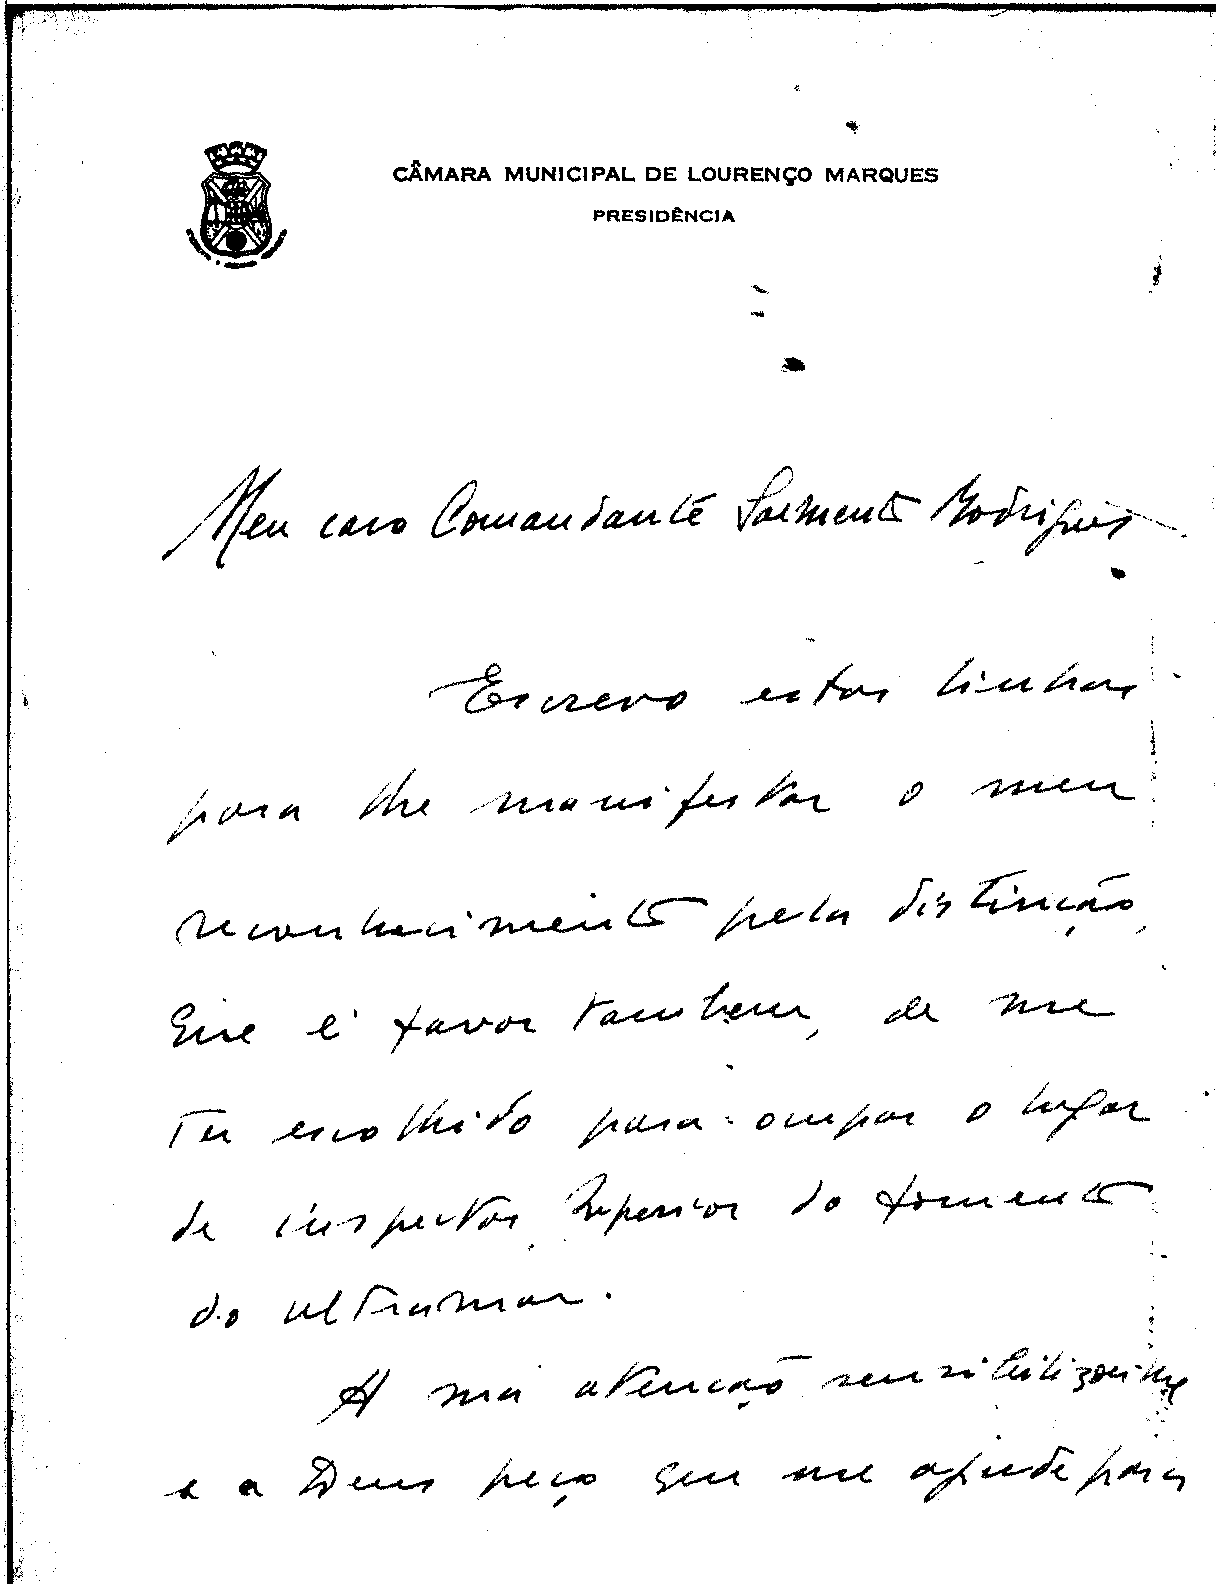 CÂMARA MUNICIPAL DE LOURENÇO MARQUES
PRESIDÊNCIA
Meu caro Comandante Sarmento Rodrigues
Escrevo estas linhas
para lhe manifestar o meu
reconhecimento pela distinção,
que é favor tambem, de me
ter escolhido para ocupar o lugar
de inspector superior do fomento
do ultramar.
A sua atenção sensibilizou-me
e a Deus peço que me ajude para